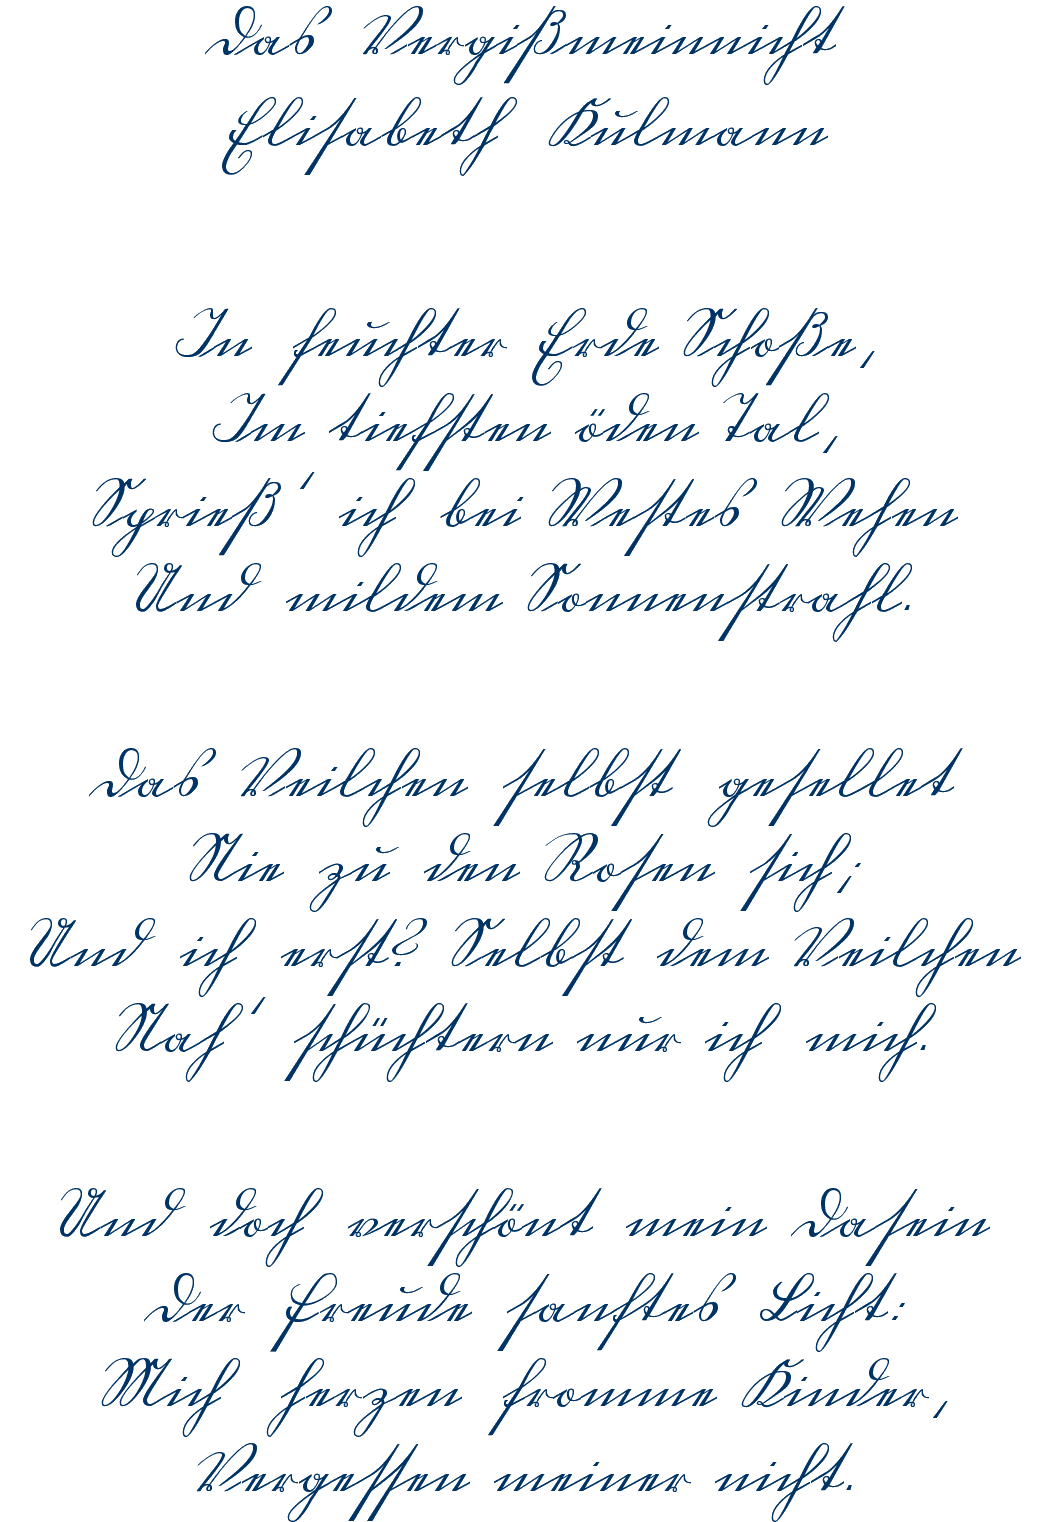 Das Vergißmeinnicht
Elisabeth Kulmann
In feuchter Erde Schoße,
Im tiefsten öden Tal,
Sprieß' ich bei Westes Wehen
Und mildem Sonnenstrahl.
Das Veilchen selbst gesellet
Nie zu den Rosen sich;
Und ich erst? Selbst dem Veilchen
Nah' schüchtern nur ich mich.
Und doch verschönt mein Dasein
Der Freude sanftes Licht:
Mich herzen fromme Kinder,
Vergessen meiner nicht.